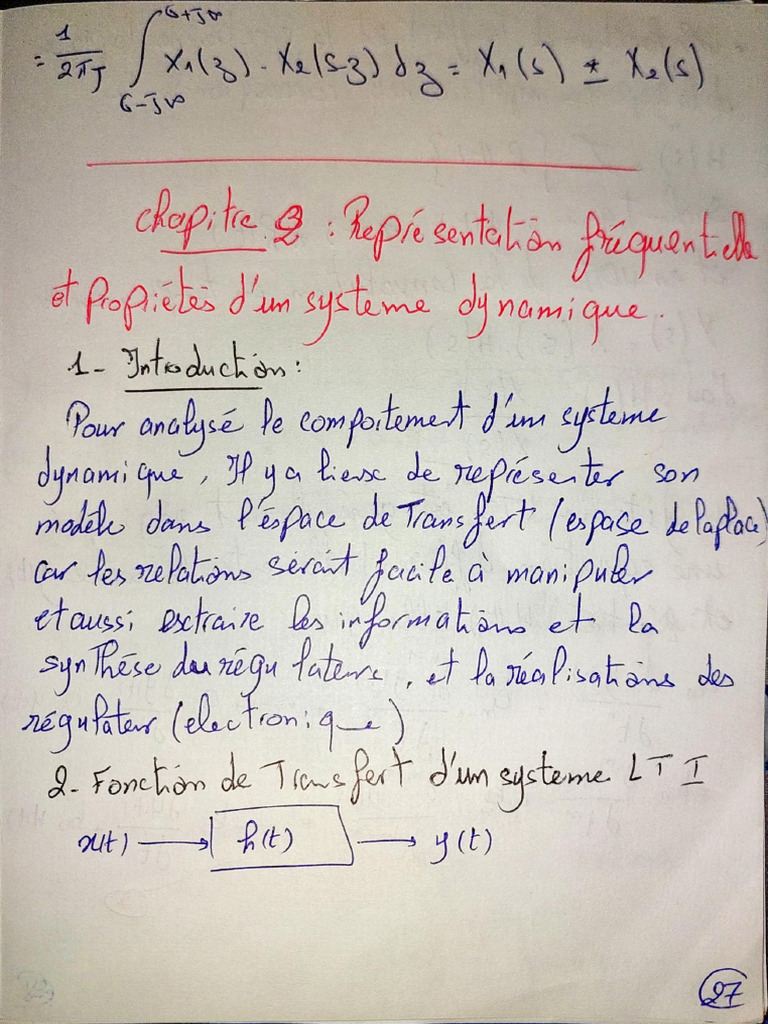 = 1/2πj ∫ σ-j∞ σ+j∞ X1(z) . X2(s-z) dz = X1(s) * X2(s)
chapitre 2 : Représentation fréquentielle
et Propiétés d'un systeme dynamique.
1- Introduction :
Pour analysé le comportement d'un systeme
dynamique, Il y a lieux de représenter son
modèle dans l'éspace de Transfert (espase de laplace)
car les relations seront facile à manipuler
et aussi extraire les informations et la
synthése des régulateurs, et la réalisations des
régulateur (electronique)
2- Fonction de Transfert d'un systeme LTI
x(t) → h(t) → y(t)
27